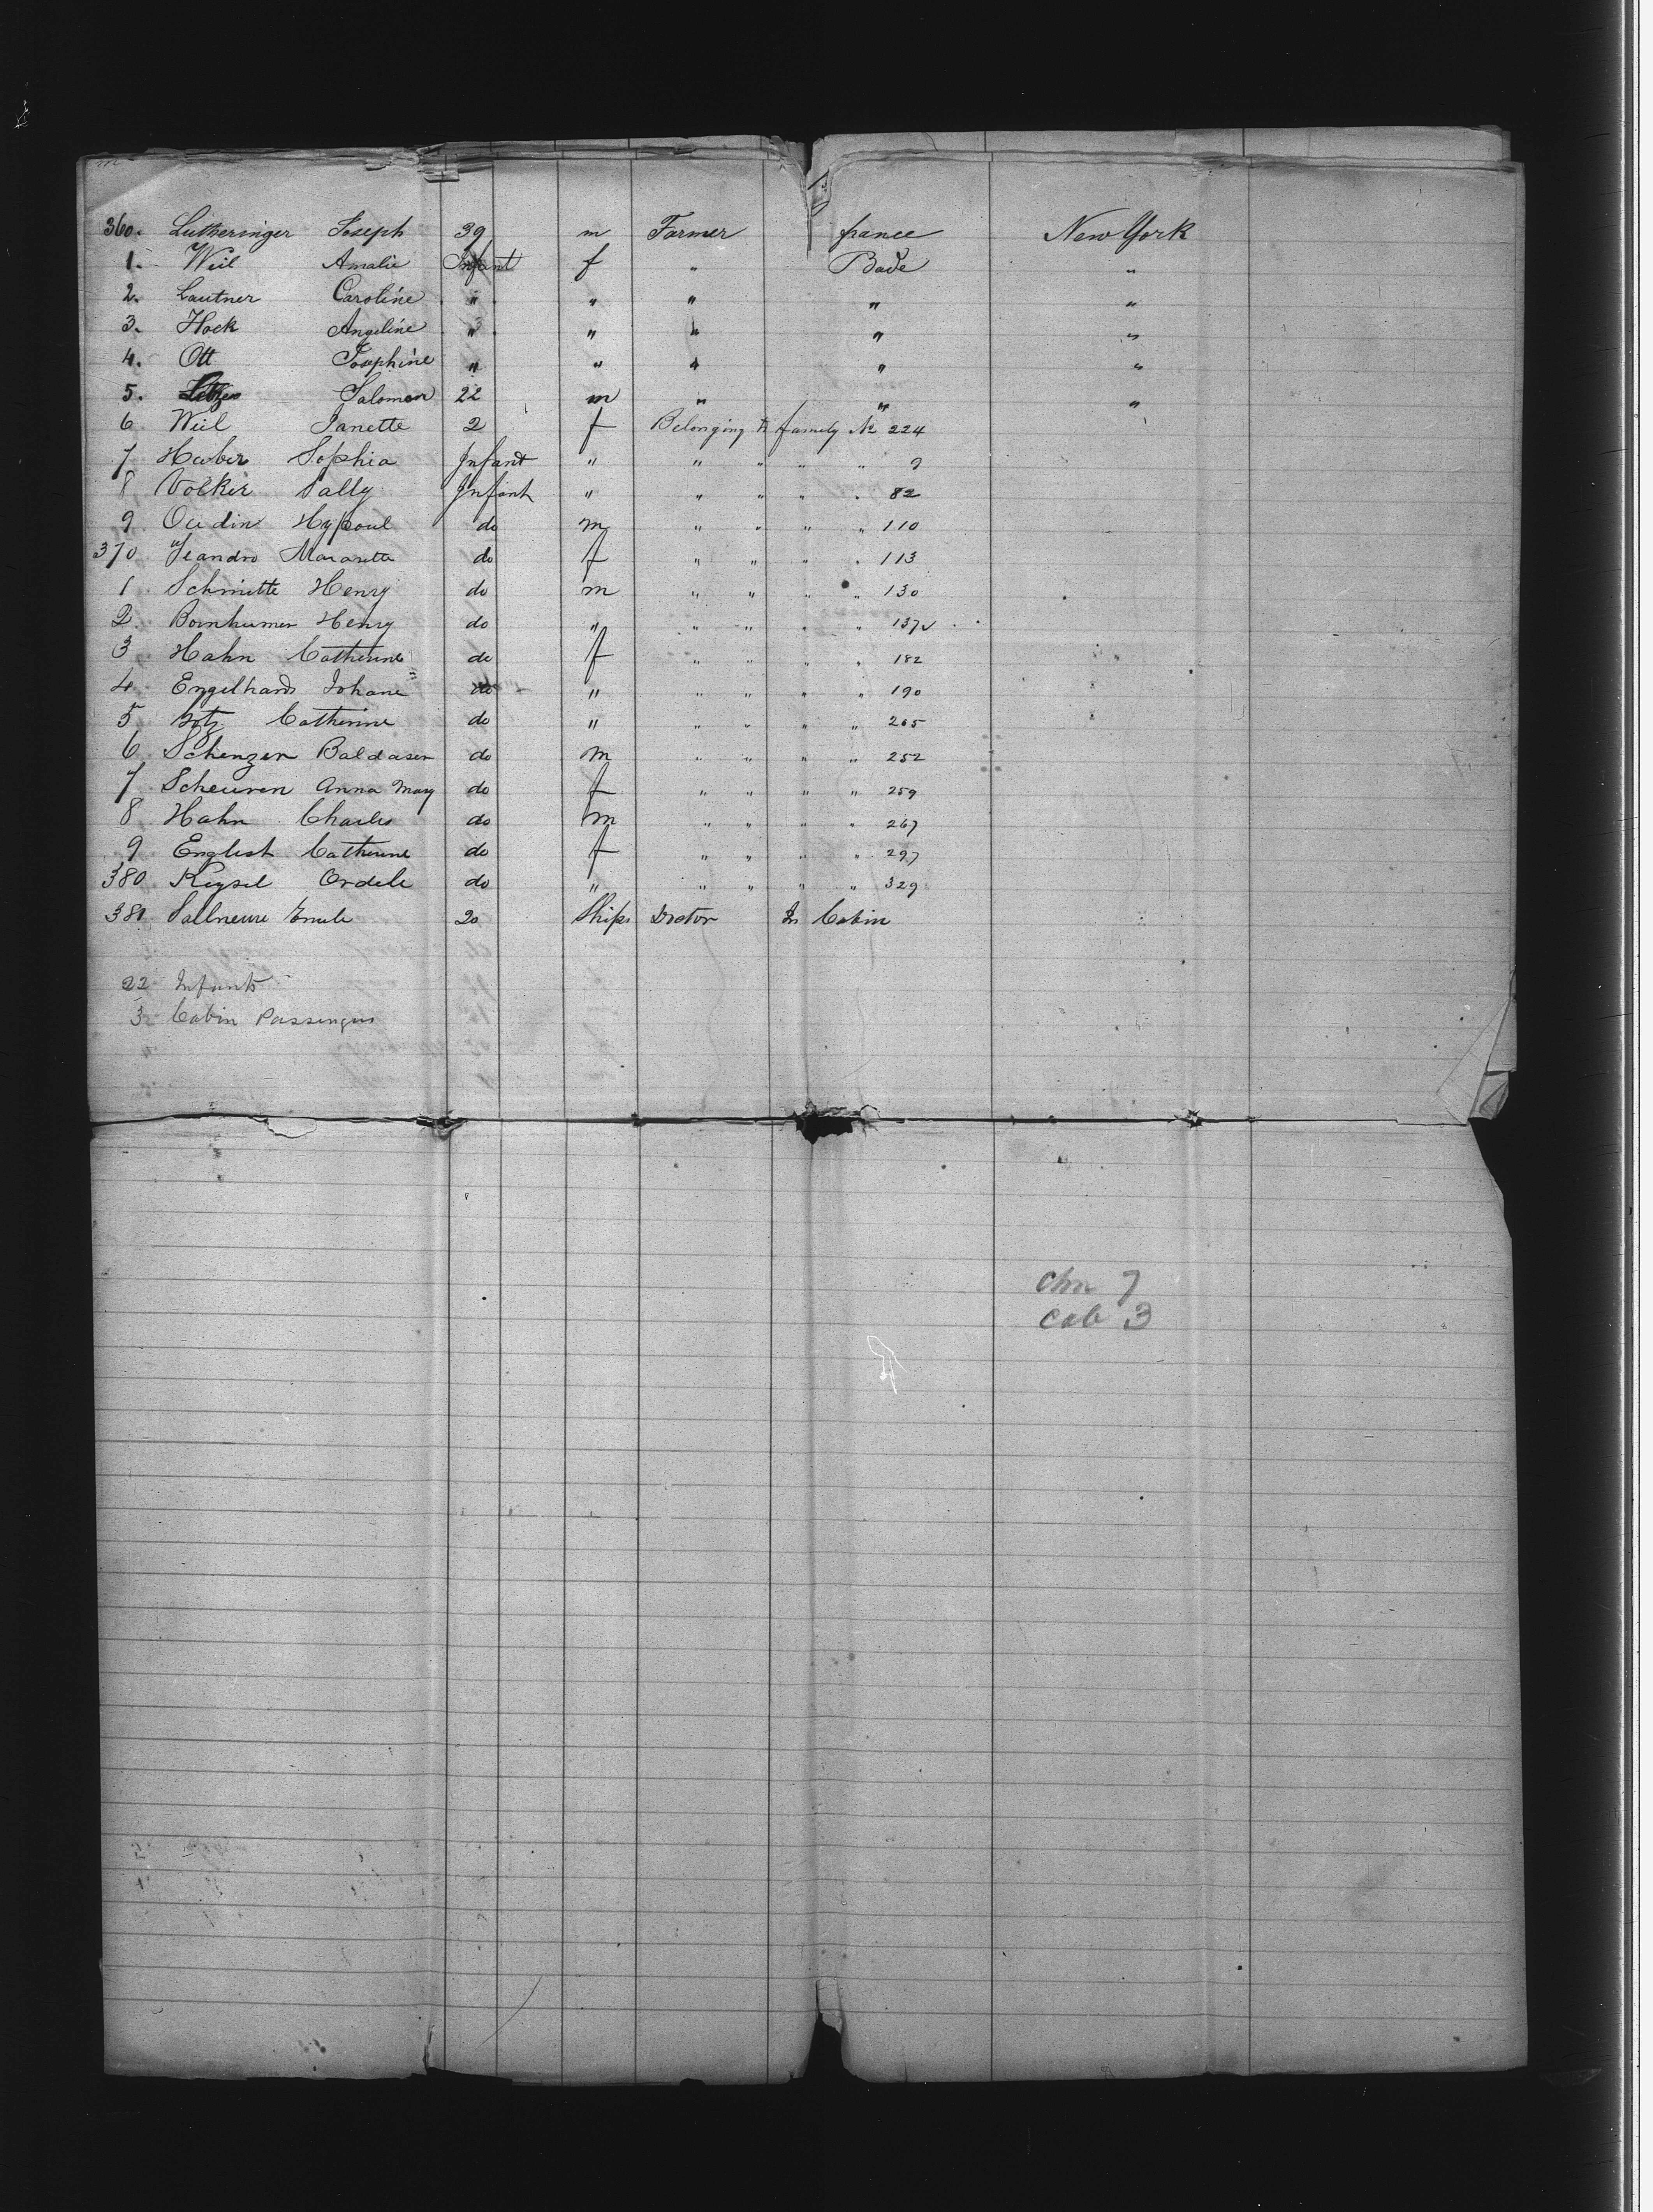 360. Lutheringer Joseph 39 m Farmer france New York
1. Weil Amalie Infant f " Bade "
2. Lautner Caroline " " " " "
3. Hock Angeline " " " " "
4. Ott Josephine " " " " "
5. Salomon 22 m " " "
6 Weil Janette 2 f Belonging to family No 224
7 Huber Sophia Infant " " " " " 9
8 Volker Sally Infant " " " " " 82
9 Oudin Hypoul do m " " " " 110
370 do f " " " " 113
1 Schmitte Henry do m " " " " 130
2 Bornhumer Henry do " " " " " 137
3 Hahn Catherine do f " " " " 182
4 Engelhard Johane do " " " " " 190
5 Gotz Catherine do " " " " " 205
6 Schenzer Baldaser do m " " " " 252
7 Scheuren Anna Mary do f " " " " 259
8 Hahn Charles do m " " " " 267
9 Englest Catherine do f " " " " 297
380 Keysel Ordele do " " " " " 329
381 Emile 20 Ships Doctor In Cabin
22 Infants
3 Cabin Passengers
Chn 7
Cab 3